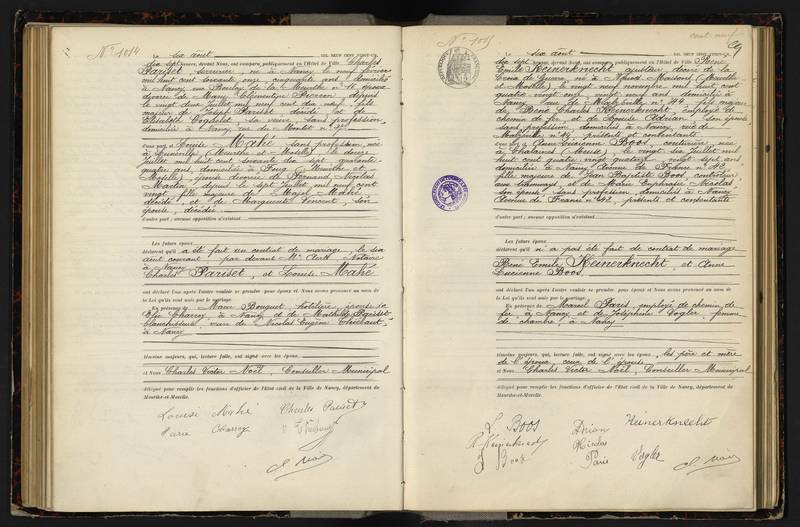 N° 1014
Le six août MIL NEUF CENT VINGT-UN,
dix sept heures, devant Nous, ont comparu publiquement en l'Hôtel de Ville Charles
Pariset, serrurier, né à Nancy le neuf février
mil huit cent soixante onze cinquante ans, domicilié
à Nancy rue de la Meurthe n° époux
divorcé de Mary Clémentine Pierron depuis
le vingt deux juillet mil neuf cent dix neuf, fils
majeur de Joseph Pariset décédé et de
Elisabeth Vogdelet, sa veuve, sans profession,
domiciliée à Nancy, rue du Montet n°
d'une part et Louise Mahé sans profession, née
à Lunéville (Meurthe et Moselle) le douze
juillet mil huit cent soixante dix sept quarante
quatre ans, domiciliée à Foug (Meurthe et
Moselle), épouse divorcée de Fernand Nicolas
Martin, depuis le sept juillet mil neuf cent
vingt, fille majeure de Mahé
décédé, et de Marguerite Vincent, son
épouse, décédée
d'autre part; aucune opposition n'existant
Les futurs époux
déclarent qu'il a été fait un contrat de mariage, le six
août courant, par devant Me Notaire
à Nancy
Charles Pariset, et Louise Mahé
ont déclaré l'un après l'autre vouloir se prendre pour époux et Nous avons prononcé au nom de
la Loi qu'ils sont unis par le mariage.
En présence de Marie Bouquet, hôtelière, épouse de
Elie Charroy, à Nancy et de Mathilde Pariset
blanchisseuse, veuve de Nicolas Eugène Thiébaut,
à Nancy
témoins majeurs, qui, lecture faite, ont signé avec les époux
et Nous Charles Victor Noël, Conseiller Municipal
délégué pour remplir les fonctions d'officier de l'Etat civil de la Ville de Nancy, département de
Meurthe-et-Moselle.
Louise Mahé Charles Pariset
Marie Charroy
Ch. Noël
N° 1015
Le six août MIL NEUF CENT VINGT-UN,
dix sept heures, devant Nous, ont comparu publiquement en l'Hôtel de Ville René
Emile Keinerknecht, ajusteur, décoré de la
Croix de Guerre, né à Neuves Maisons (Meurthe
et Moselle), le vingt novembre mil huit cent
quatre vingt vingt ans, domicilié à
Nancy, rue de Malzéville n° 44, fils majeur
de René Charles Keinerknecht, employé de
chemin de fer, et de Louise Adrian, son épouse,
sans profession, domiciliés à Nancy, rue de
Malzéville n° 44, présents et consentants
d'une part et Anne Lucienne Boos, couturière, née
à Chalaines (Meuse), le vingt six juillet mil
huit cent quatre vingt quatorze, vingt sept ans,
domiciliée à Nancy, avenue de France n° 42,
fille majeure de Jean Baptiste Boos, contrôleur
aux tramways, et de Marie Euphrasie Nicolas,
son épouse, sans profession, domiciliés à Nancy,
avenue de France n° 42, présents et consentants
d'autre part; aucune opposition n'existant
Les futurs époux
déclarent qu'il n'a pas été fait de contrat de mariage
René Emile Keinerknecht, et Anne
Lucienne Boos
ont déclaré l'un après l'autre vouloir se prendre pour époux et Nous avons prononcé au nom de
la Loi qu'ils sont unis par le mariage.
En présence de Marcel Paris, employé de chemin de
fer à Nancy et de Joséphine Vogler, femme
de chambre, à Nancy
témoins majeurs, qui, lecture faite, ont signé avec les époux, les père et mère
de l'époux, ceux de l'épouse
et Nous Charles Victor Noël, Conseiller Municipal
délégué pour remplir les fonctions d'officier de l'Etat civil de la Ville de Nancy, département de
Meurthe-et-Moselle.
L. Boos Adrian Keinerknecht
R. Keinerknecht Nicolas
J. Boos Paris Vogler Ch. Noël